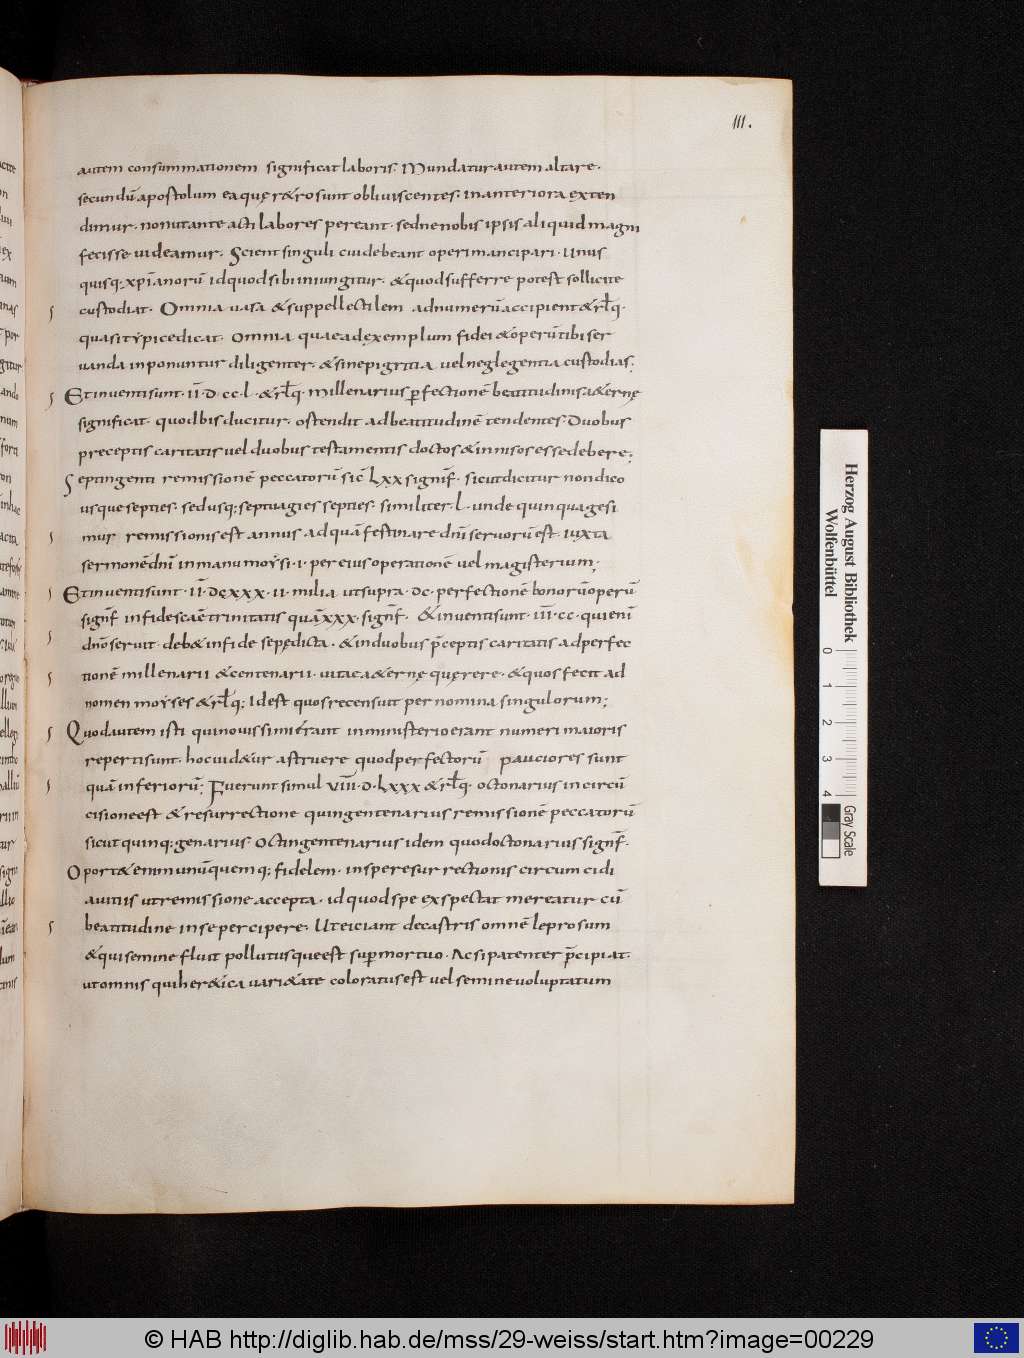 111.
autem consummationem significat laboris. Mundatur autem altare.
secundū apostolum ea quę r&ro sunt obliviscentes. in anteriora exten
dimur. non ut ante acti labores pereant. sed ne nobis ipsis aliquid magni
fecisse videamur. Scient singuli cui debeant operi mancipari. unus
quisq; xp̄ianorū id quod sibi iniungitur. & quod sufferre potest sollicite
custodiat. Omnia vasa & suppellectilem ad numerū accipient & rl̄q.
quasi tẏpice dicat. omnia quae ad exemplum fidei & operū tibi ser
vanda inponuntur diligenter. & sine pigritia vel neglegentia custodias;
Et inventi sunt. II̅. D. CC. L. & rl̄q. millenarius ꝑfectionē beatitudinis a&ernę
significat. quod bis ducitur. ostendit ad beatitudinē tendentes. Duobus
preceptis caritatis vel duobus testamentis doctos & innisos esse debere;
Septingenti remissionē peccatorū sic̄ LXX signif̄. sicut dicitur non dico
usque septies. sed usq; septuagies septies. similiter. L. unde quinquagesi
mus remissionis est annus ad quā festinare dn̄i servorū est. iuxta
sermonē dn̄i in manu moẏsi. i. per eius operationē vel magisterium;
Et inventi sunt. II̅. DCXXX. II. milia ut supra. DC. perfectionē bonorū operū
signf̄ in fide sc̄ae trinitatis quā XXX. signf̄. & inventi sunt. III̅. CC. qui enī
dn̄o servit. deb& in fide sepędicta. & in duobus p̄ceptis caritatis ad perfec
tionē millenarii & centenarii. vitae a&ernę quęrere. & quos fecit ad
nomen moẏses & rl̄q; Idest quos recensuit per nomina singulorum;
Quod autem isti qui novissimi erant in ministerio erant numeri maioris
reperti sunt. hoc vid&ur astruere quod perfectorū pauciores sunt
quā inferiorū; Fuerunt simul VIII̅. D. LXXX & rl̄q. octonarius in circū
cisione est & resurrectione quingentenarius remissionē peccatorū
sicut quinq;genarius. octingentenarius idem quod octonarius signf̄.
Oport& enim unū quemq; fidelem. in spe resurrectionis circumcidi
a vitiis ut remissione accepta. id quod spe exspectat mereatur cū
beatitudine in se percipere. Ut eiciant de castris omnē leprosum
& qui semine fluit pollutusque est sup̄ mortuo. Ac si patenter p̄cipiat.
ut omnis qui her&ica vari&ate coloratus est vel semine voluptatum
Herzog August Bibliothek
Wolfenbüttel
0 1 2 3 4
Gray Scale
© HAB http://diglib.hab.de/mss/29-weiss/start.htm?image=00229